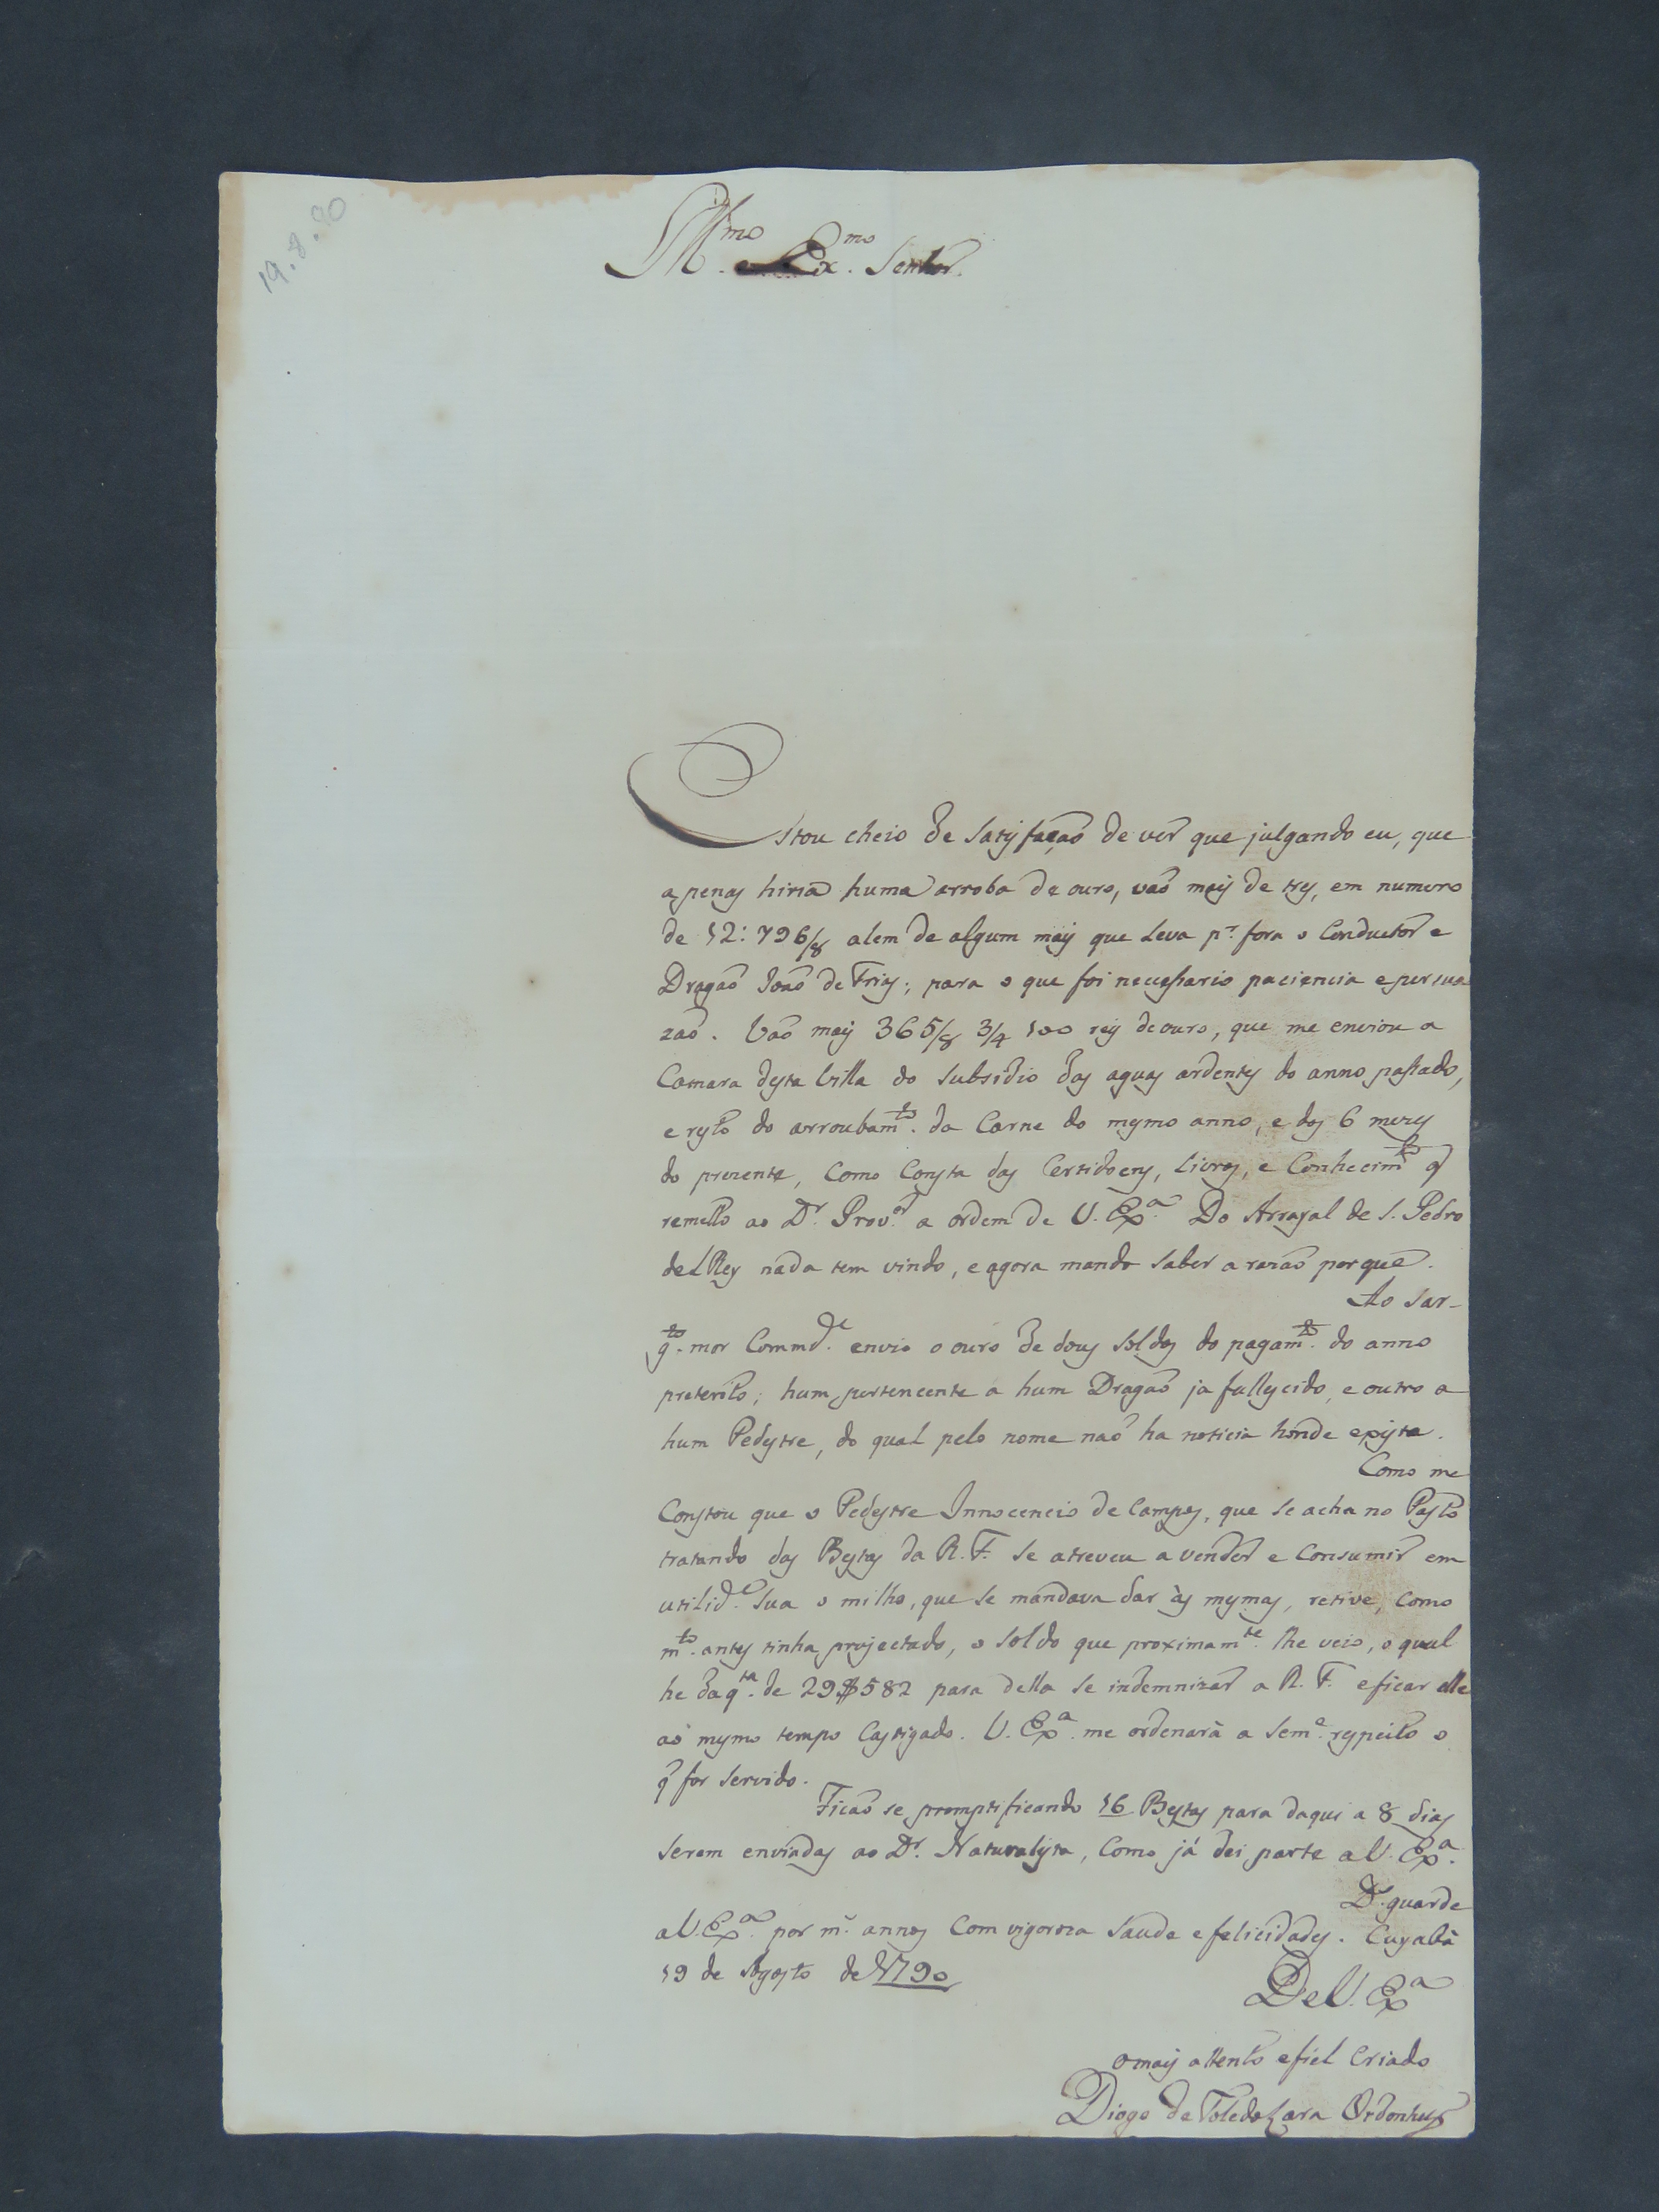 19.8.90
Ill.mo e Ex.mo Senhor.
Estou cheio de satisfaçaõ de ver que julgando eu, que
apenas hiria huma arroba de ouro, vaõ mais de tres, em numero
de 12:796/8 alem de algum mais que leva p.r fora o Conductor e
Dragaõ Joaõ de Frias; para o que foi necessario paciencia e persua
zaõ. Vaõ mais 365/8 3/4 100 reis de ouro, que me enviou a
Camara desta Villa do subsidio das aguas ardentes do anno passado,
e resto do arroubam.to da Carne do mesmo anno, e dos 6 mezes
do prezente, como consta das Certidoens, Livros, e Conhecim.tos q̃
remetto ao D.r Prov.or a ordem de V. Ex.a Do Arrayal de S. Pedro
delRey nada tem vindo, e agora mando saber a razaõ porque.
Ao Sar-
g.to mor Commd.e envio o ouro de dous soldos do pagam.to do anno
preterito; hum pertencente a hum Dragaõ ja fallescido, e outro a
hum Pedestre, do qual pelo nome naõ ha noticia honde existe.
Como me
Constou que o Pedestre Innocencio de Campos, que se acha no Pasto
tratando das Bestas da R. F. se atreveu a vender e consumir em
utilid.e sua o milho, que se mandava dar às mesmas, retive, como
m.to antes tinha projectado, o soldo que proximam.te lhe veio, o qual
he da q.ta de 29$582 para della se indemnizar a R. F. e ficar elle
aõ mesmo tempo castigado. V. Ex.a me ordenarà a sem.e respeito o
q̃ for servido.
Ficaõ se promptificando 16 Bestas para daqui a 8 dias
serem enviadas ao D.r Naturalista, como já dei parte a V. Ex.a
D.s guarde
a V. Ex.a por m.s annos com vigoroza saude e felicidades. Cuyabà
19 de Agosto de 1790
De V. Ex.a
o mais attento e fiel Criado
Diogo de Toledo Lara Ordonhes